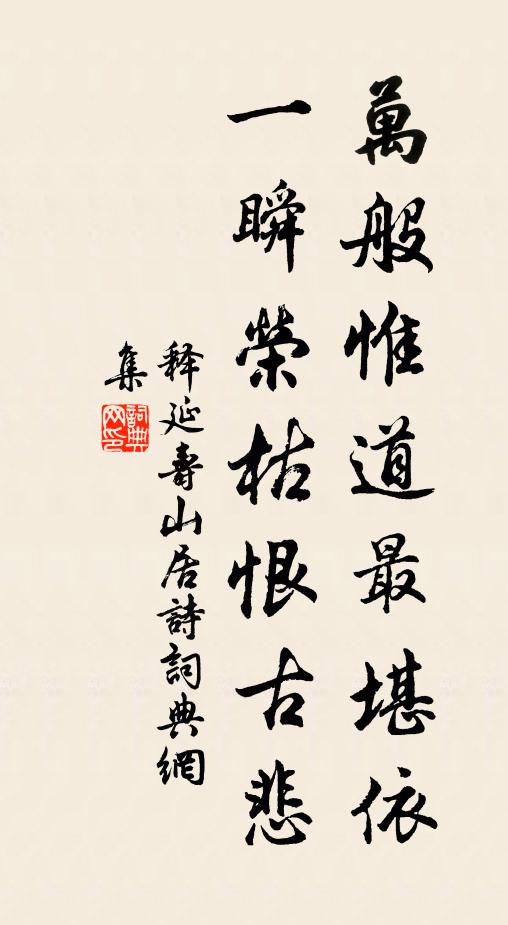 萬般惟道最堪依
一瞬榮枯恨古悲
释延壽山居詩詞典網
集
詞典网印